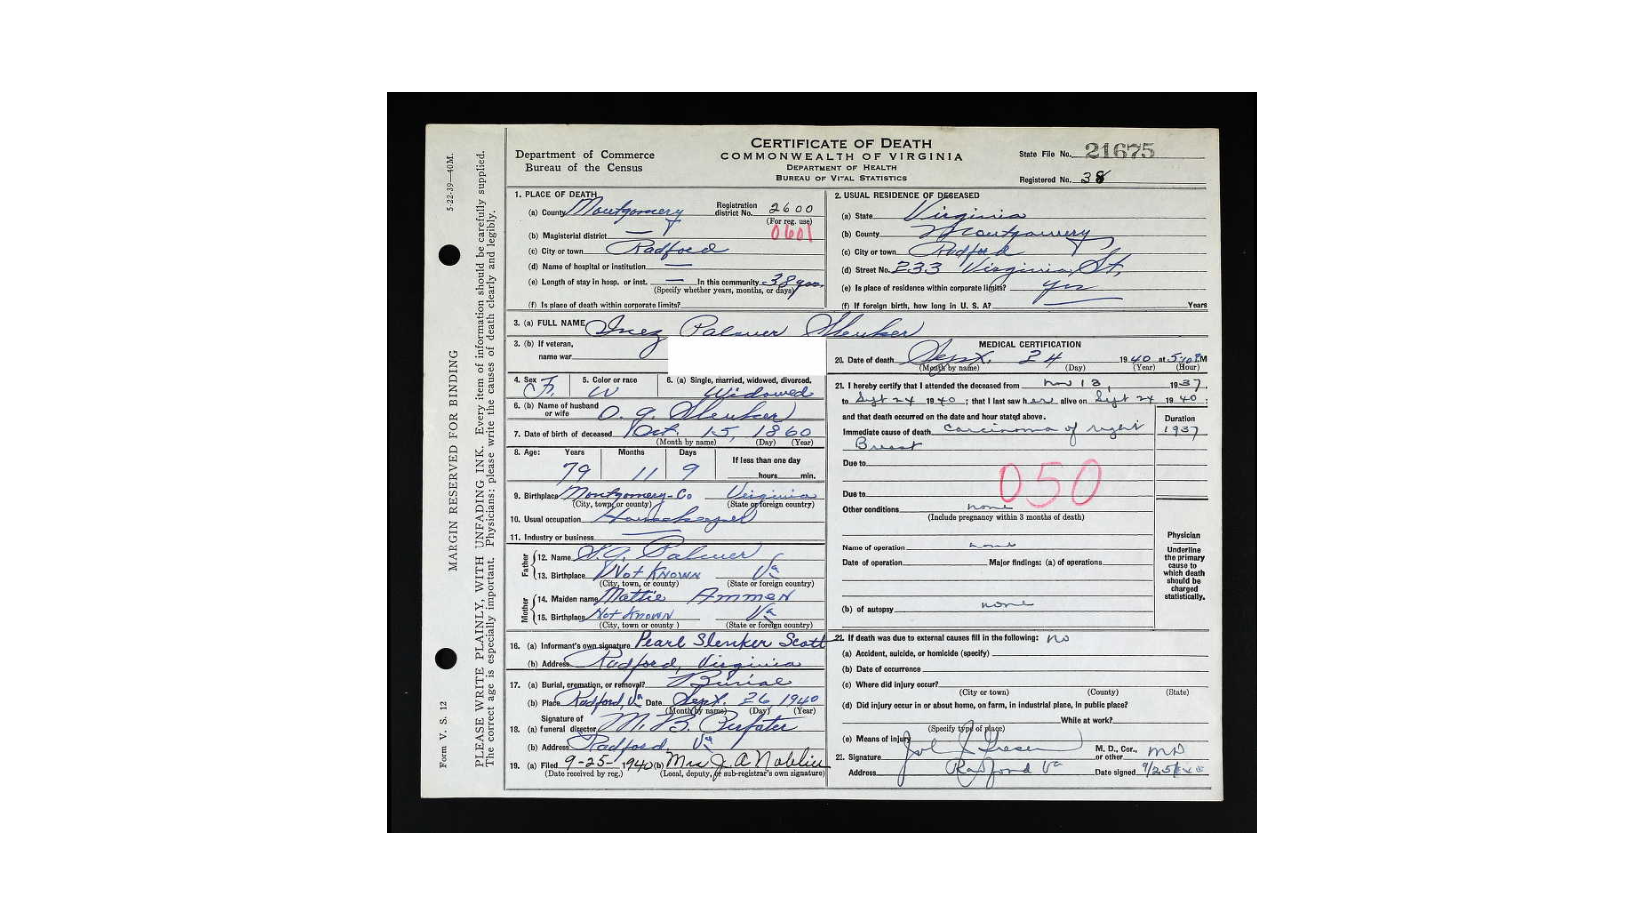 5-22-39—40M.
MARGIN RESERVED FOR BINDING
Form V. S. 12
PLEASE WRITE PLAINLY, WITH UNFADING INK. Every item of information should be carefully supplied.
The correct age is especially important. Physicians: please write the causes of death clearly and legibly.
Department of Commerce
Bureau of the Census
CERTIFICATE OF DEATH
COMMONWEALTH OF VIRGINIA
DEPARTMENT OF HEALTH
BUREAU OF VITAL STATISTICS
State File No. 21675
Registered No. 38
1. PLACE OF DEATH
(a) County Montgomery Registration district No. 2600
(For reg. use)
(b) Magisterial district — 0601
(c) City or town Radford
(d) Name of hospital or institution —
(e) Length of stay in hosp. or inst. — In this community 38 yrs.
(Specify whether years, months, or days)
(f) Is place of death within corporate limits?
2. USUAL RESIDENCE OF DECEASED
(a) State Virginia
(b) County Montgomery
(c) City or town Radford
(d) Street No. 233 Virginia St,
(e) Is place of residence within corporate limits? yes
(f) If foreign birth, how long in U. S. A? Years
3. (a) FULL NAME Inez Palmer Slenker
3. (b) If veteran,
name war
4. Sex F. 5. Color or race W 6. (a) Single, married, widowed, divorced. Widowed
6. (b) Name of husband or wife O. G. Slenker
7. Date of birth of deceased Oct. 15, 1860
(Month by name) (Day) (Year)
8. Age: Years Months Days If less than one day
79 11 9 hours min.
9. Birthplace Montgomery-Co Virginia
(City, town, or county) (State or foreign country)
10. Usual occupation Housekeeper
11. Industry or business
Father
12. Name Palmer
13. Birthplace Not Known Va
(City, town, or county) (State or foreign country)
Mother
14. Maiden name Mattie Ammen
15. Birthplace Not Known Va
(City, town or county) (State or foreign country)
16. (a) Informant's own signature Pearl Slenker Scott
(b) Address Radford, Virginia
17. (a) Burial, cremation, or removal? Burial
(b) Place Radford, Va Date Sept. 26 1940
(Month by name) (Day) (Year)
18. Signature of funeral director M. B.
(b) Address Radford, Va
19. (a) Filed 9-25-1940 (b) Mrs J. A Noblin
(Date received by reg.) (Local, deputy, or sub-registrar's own signature)
MEDICAL CERTIFICATION
20. Date of death Sept. 24 1940 at 5:10 PM
(Month by name) (Day) (Year) (Hour)
21. I hereby certify that I attended the deceased from Nov 13, 1937,
to Sept 24 1940; that I last saw her alive on Sept 24 1940;
and that death occurred on the date and hour stated above.
Duration
Immediate cause of death carcinoma of right 1937
Breast
Due to
050
Due to
Other conditions none
(Include pregnancy within 3 months of death)
Name of operation none
Date of operation Major findings: (a) of operations
(b) of autopsy none
Physician
Underline
the primary
cause to
which death
should be
charged
statistically.
22. If death was due to external causes fill in the following: no
(a) Accident, suicide, or homicide (specify)
(b) Date of occurrence
(c) Where did injury occur?
(City or town) (County) (State)
(d) Did injury occur in or about home, on farm, in industrial place, in public place?
While at work?
(Specify type of place)
(e) Means of injury
Signature M. D., Cor., or other MD
Address Radford Va Date signed